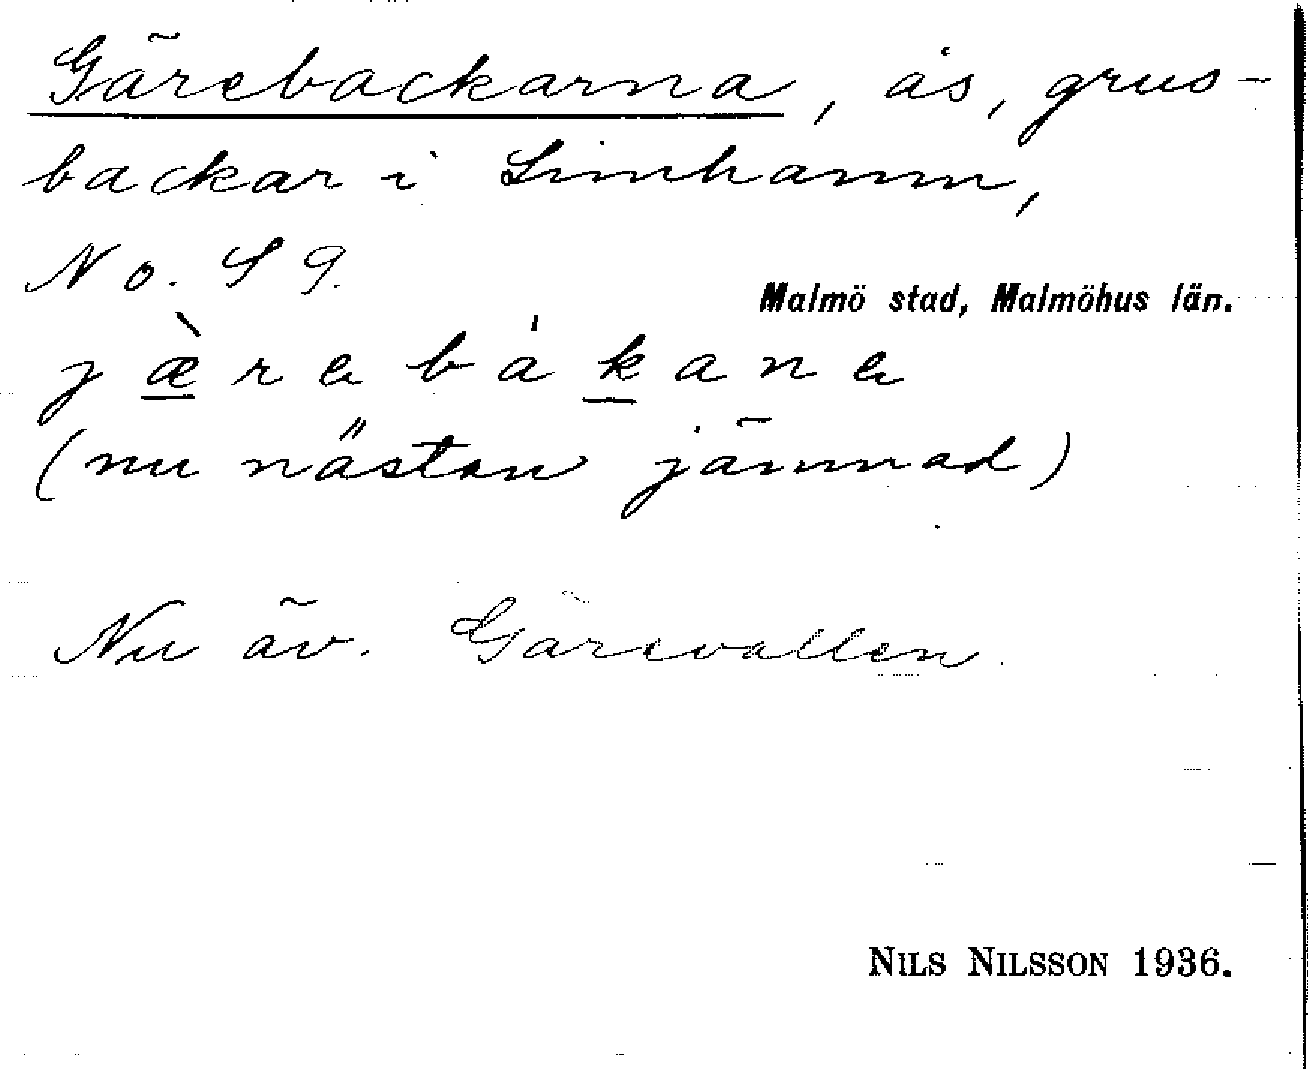 Gärebackarna, ås, grus-
backar i Limhamn,
No. S 9.
Malmö stad, Malmöhus län.
jæ̀rebákane
(nu nästan jämnad)
Nu äv. Gärevallen.
NILS NILSSON 1936.